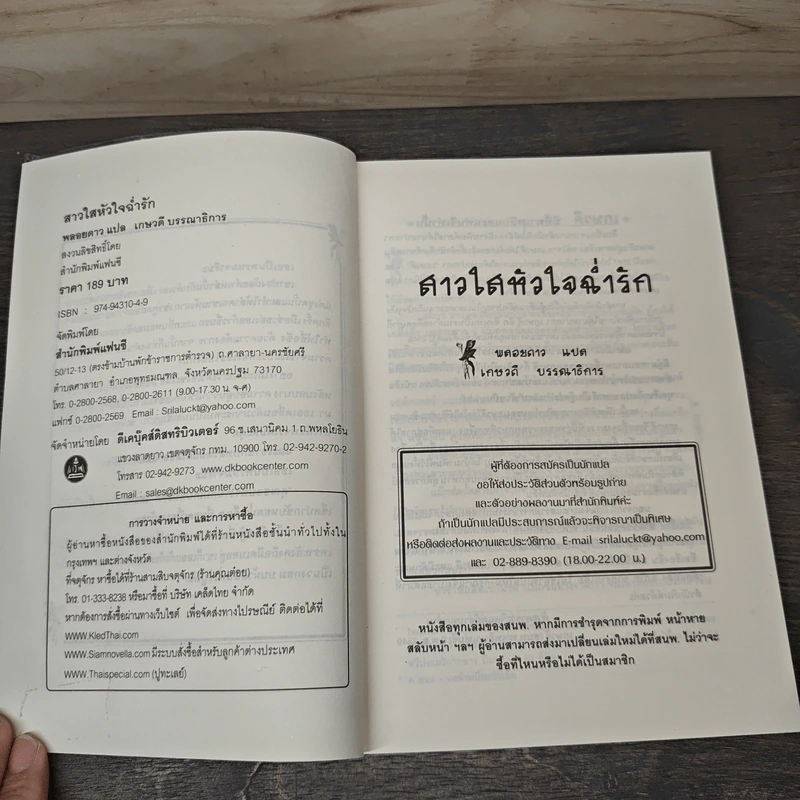 สาวใสหัวใจฉ่ำรัก
พลอยดาว แปล เกษวดี บรรณาธิการ
สงวนลิขสิทธิ์โดย
สำนักพิมพ์แฟนซี
ราคา 189 บาท
ISBN : 974-94310-4-9
จัดพิมพ์โดย
สำนักพิมพ์แฟนซี
50/12-13 (ตรงข้ามบ้านพักข้าราชการตำรวจ) ถ.ศาลายา-นครชัยศรี
ตำบลศาลายา อำเภอพุทธมณฑล จังหวัดนครปฐม 73170
โทร. 0-2800-2568, 0-2800-2611 (9.00-17.30 น. จ-ศ)
แฟกซ์ 0-2800-2569 Email : Srilaluckt@yahoo.com
จัดจำหน่ายโดย ดีเคบุ๊คส์ดิสทริบิวเตอร์ 96 ซ.เสนานิคม 1 ถ.พหลโยธิน
แขวงลาดยาว เขตจตุจักร กทม. 10900 โทร. 02-942-9270-2
โทรสาร 02-942-9273 www.dkbookcenter.com
Email : sales@dkbookcenter.com
การวางจำหน่าย และการหาซื้อ
ผู้อ่านหาซื้อหนังสือของสำนักพิมพ์ได้ที่ร้านหนังสือชั้นนำทั่วไปทั้งใน
กรุงเทพฯ และต่างจังหวัด
ที่จตุจักร หาซื้อได้ที่ร้านสามสิบจตุจักร (ร้านคุณต่อย)
โทร. 01-333-8238 หรือมาซื้อที่ บริษัท เคล็ดไทย จำกัด
หากต้องการสั่งซื้อผ่านทางเว็บไซต์ เพื่อจัดส่งทางไปรษณีย์ ติดต่อได้ที่
WWW.KledThai.com
WWW.Siamnovella.com มีระบบสั่งซื้อสำหรับลูกค้าต่างประเทศ
WWW.Thaispecial.com (ปูทะเลย์)
สาวใสหัวใจฉ่ำรัก
พลอยดาว แปล
เกษวดี บรรณาธิการ
ผู้ที่ต้องการสมัครเป็นนักแปล
ขอให้ส่งประวัติส่วนตัวพร้อมรูปถ่าย
และตัวอย่างผลงานมาที่สำนักพิมพ์ค่ะ
ถ้าเป็นนักแปลมีประสบการณ์แล้วจะพิจารณาเป็นพิเศษ
หรือติดต่อส่งผลงานและประวัติทาง E-mail srilaluckt@yahoo.com
และ 02-889-8390 (18.00-22.00 น.)
หนังสือทุกเล่มของสนพ. หากมีการชำรุดจากการพิมพ์ หน้าหาย
สลับหน้า ฯลฯ ผู้อ่านสามารถส่งมาเปลี่ยนเล่มใหม่ได้ที่สนพ. ไม่ว่าจะ
ซื้อที่ไหนหรือไม่ได้เป็นสมาชิก